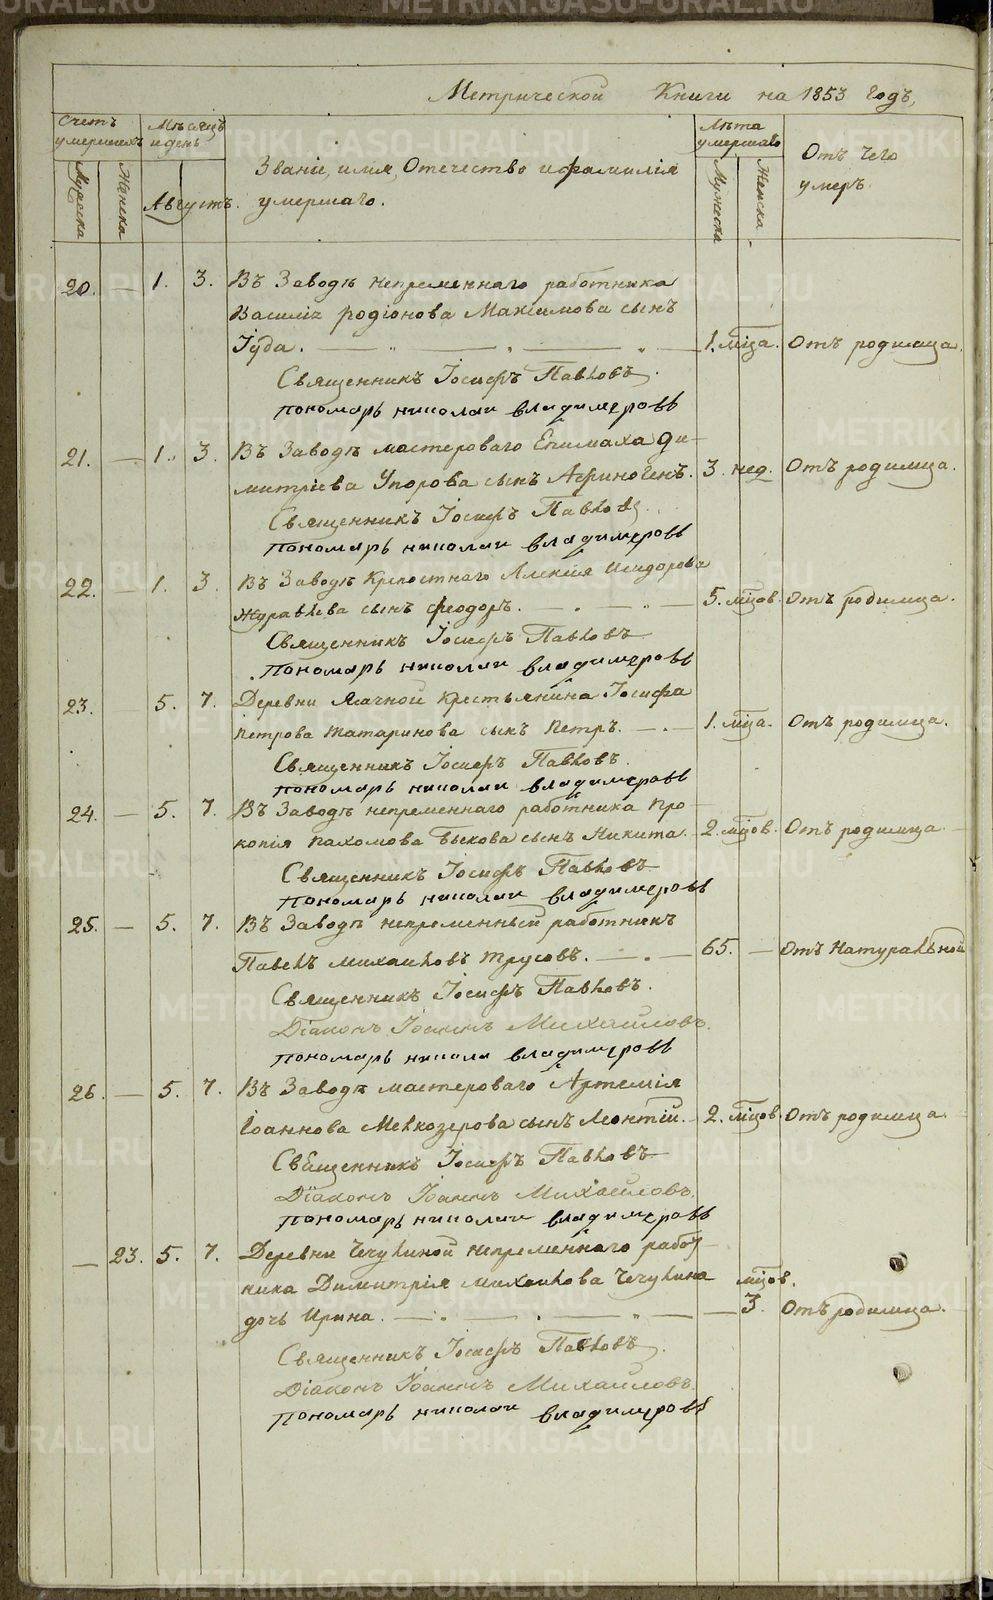 Метрической Книги на 1853 годъ,
Счетъ умершихъ
Мѣсяцъ и день
Лѣта умершаго
Отъ чего умеръ.
Званіе, имя, Отечество и фамилія умершаго.
Мужеска
Женска
Августъ.
Мужеска
Женска
20. — 1. 3. Въ Заводѣ непременнаго работника
Василія Родіонова Максимова сынъ
Іуда. — 1. мѣца. Отъ родимца.
Священникъ Іосифъ Павловъ.
пономарь николаи владимеровъ
21. — 1. 3. Въ Заводѣ мастероваго Епимаха Ди-
митріева Упорова сынъ Аѳиногенъ. 3. нед. Отъ родимца.
Священникъ Іосифъ Павловъ.
пономарь николаи владимеровъ
22. — 1. 3. Въ Заводѣ Крепостнаго Алексія Исидорова
Журавлева сынъ Феодоръ. — 5. мѣцов. Отъ родимца.
Священникъ Іосифъ Павловъ
пономарь николаи владимеровъ
23. 5. 7. Деревни Ялачной Крестьянина Іосифа
Петрова Татаринова сынъ Петръ. — 1. мѣца. Отъ родимца.
Священникъ Іосифъ Павловъ.
пономарь николаи владимеровъ
24. — 5. 7. Въ Заводѣ непременнаго работника Про-
копія Пахомова Быкова сынъ Никита. 2. мѣцов. Отъ родимца
Священникъ Іосифъ Павловъ
пономарь николаи владимеровъ
25. — 5. 7. Въ Заводѣ непременный работникъ
Павелъ Михаиловъ Трусовъ. — 65. — Отъ Натуральной
Священникъ Іосифъ Павловъ.
Діаконъ Іоаннъ Михайловъ.
пономарь никола владимеровъ
26. — 5. 7. Въ Заводѣ мастероваго Артемія
Іоаннова Мелкозерова сынъ Леонтій. 2. мѣцов. Отъ родимца.
Священникъ Іосифъ Павловъ
Діаконъ Іоаннъ Михайловъ.
пономарь николаи владимеровъ
— 23. 5. 7. Деревни Чечулиной непременнаго работ-
ника Димитрія Михаилова Чечулина мѣцов.
дочь Ирина. — 3. Отъ родимца.
Священникъ Іосифъ Павловъ.
Діаконъ Іоаннъ Михайловъ.
пономарь николаи владимеровъ
METRIKI.GASO-URAL.RU